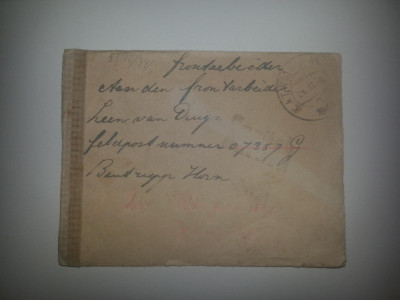 frontarbeider
Aan den frontarbeider
Leen van Druyr
feldpost nummer 07357 G
Horn